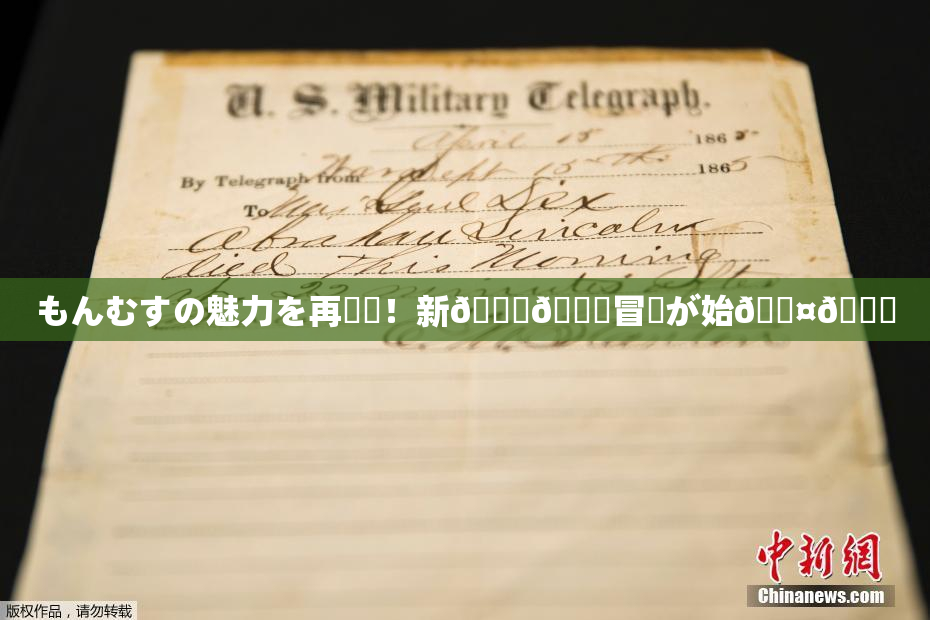 U. S. Military Telegraph.
April 15 1865.
By Telegraph from War Dept 15th 1865
To Maj Genl Dix
Abraham Lincoln
died This Morning
at 22 minutes after
もんむすの魅力を再！新ð冒が始ð¤ð
E. M. Stanton
中新网
Chinanews.com
版权作品，请勿转载